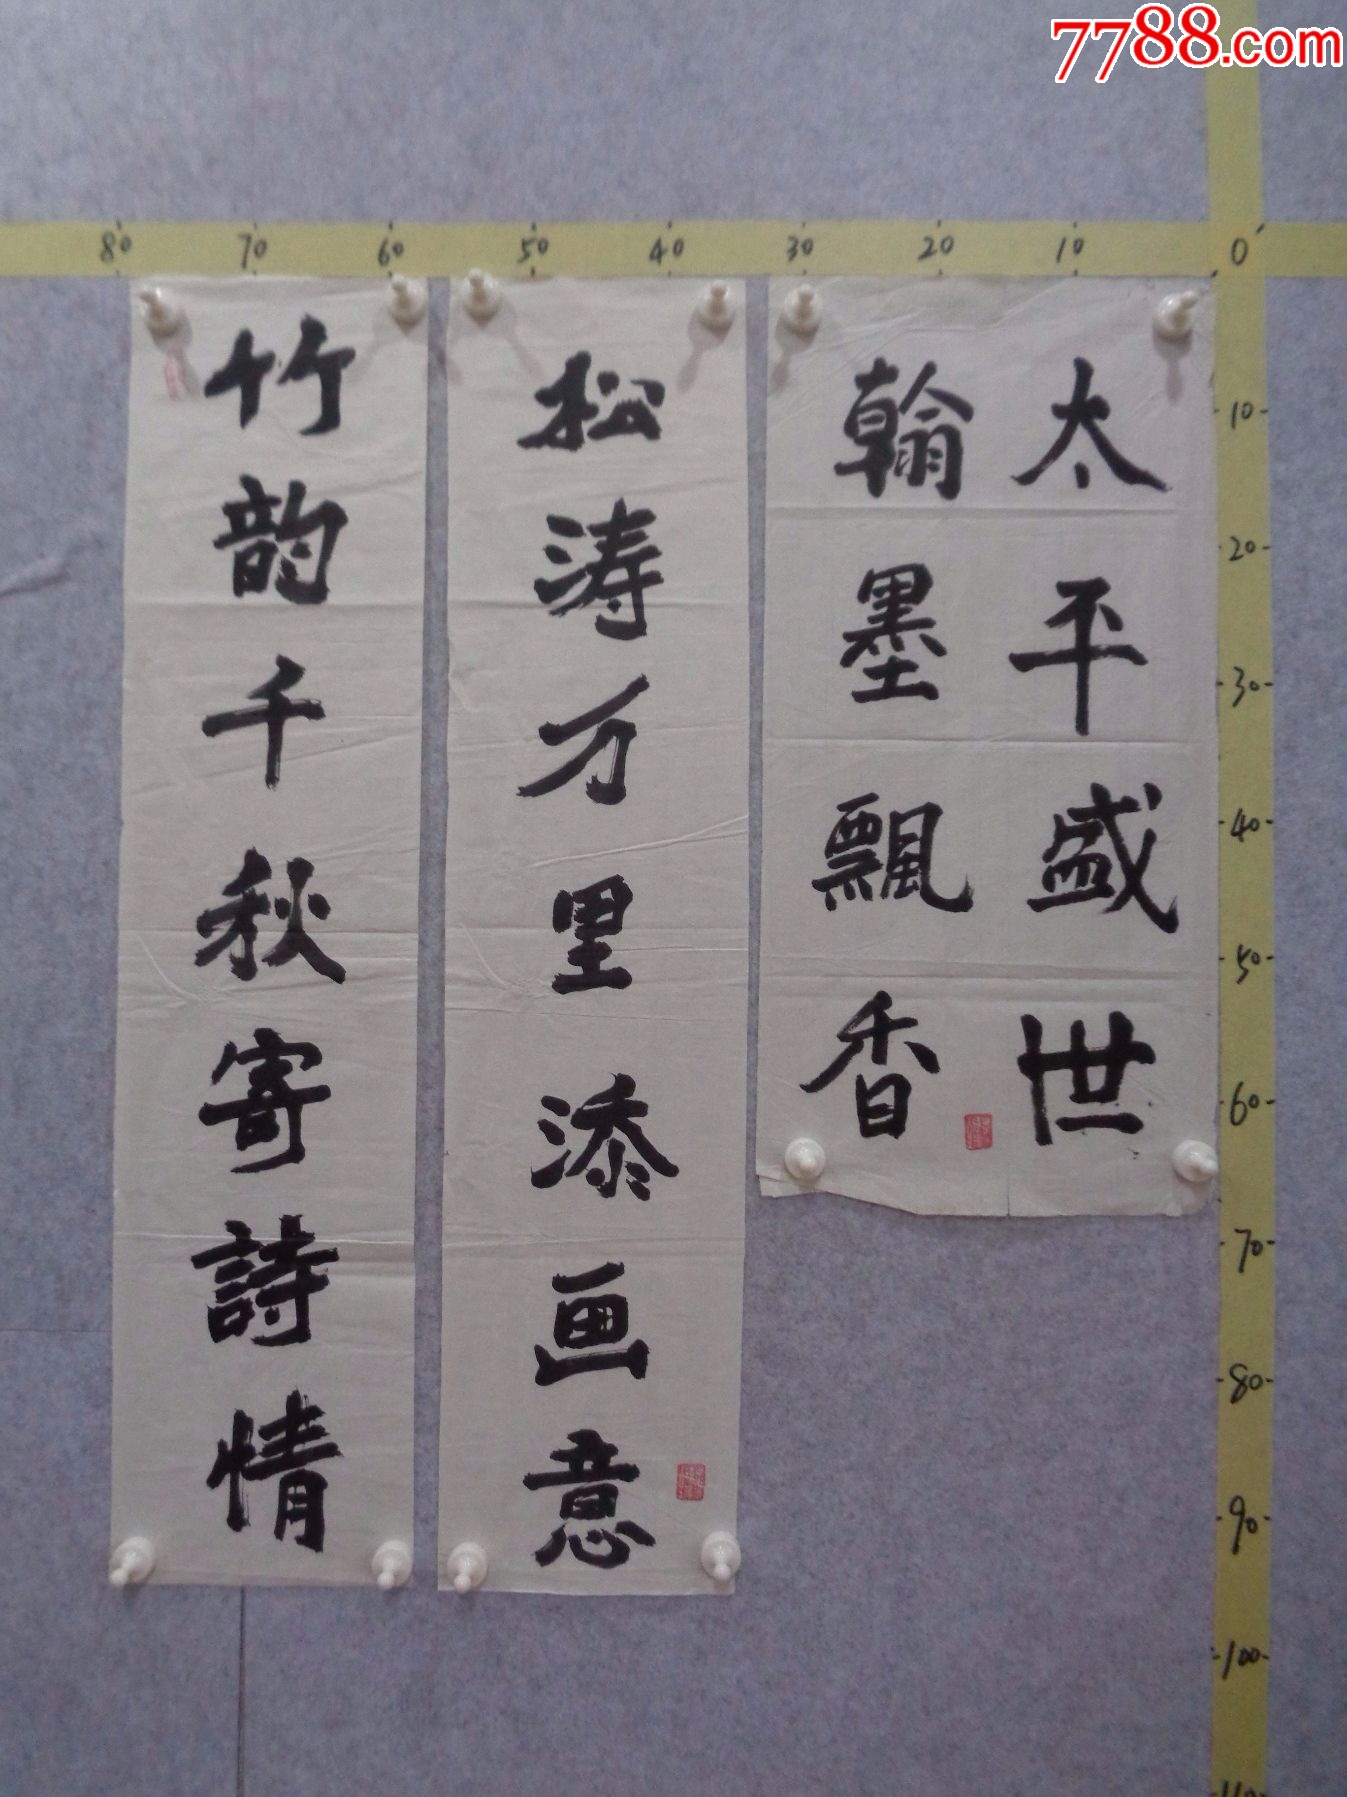 7788.com
80 70 60 50 40 30 20 10 0
太平盛世
翰墨飘香
松涛万里添画意
竹韵千秋寄詩情
10
20
30
40
50
60
70
80
90
100